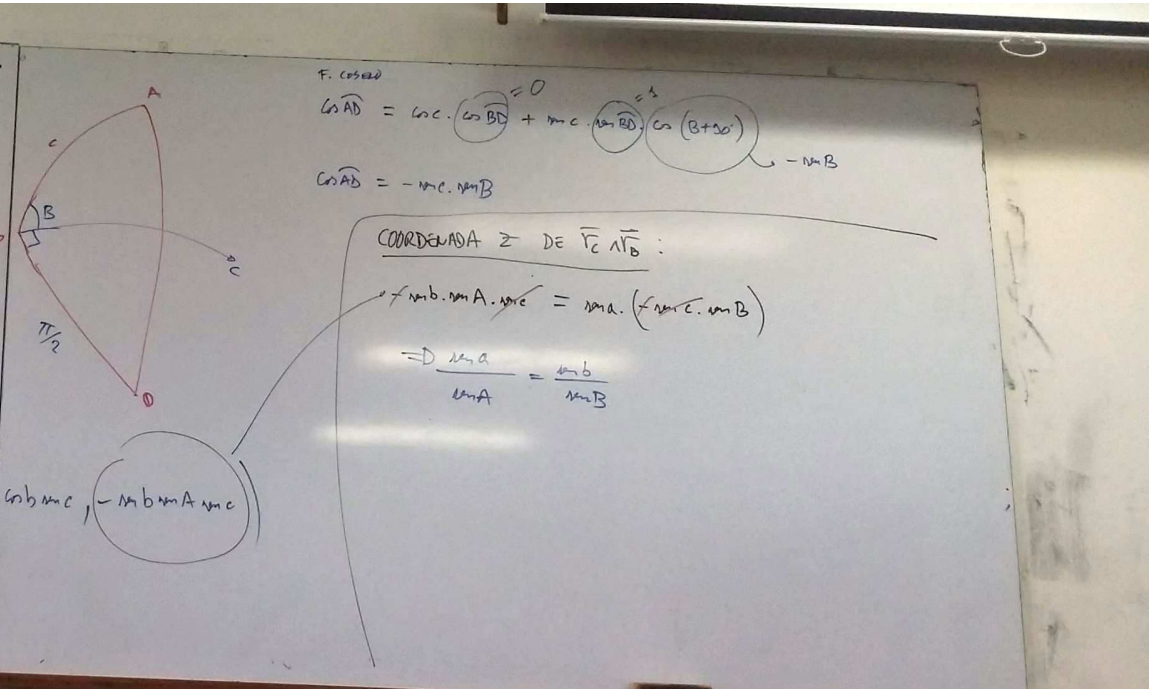 F. COSENO
cos AD = cos c . cos BD + sen c . sen BD . cos (B+90°)
= 0
= 1
- sen B
cos AD = - sen c . sen B
A
c
B
C
π/2
D
COORDENADA Z DE r_C ∧ r_B :
- sen b . sen A . sen c = sen a . (- sen c . sen B)
=> sen a / sen A = sen b / sen B
cos b sen c , - sen b sen A sen c )